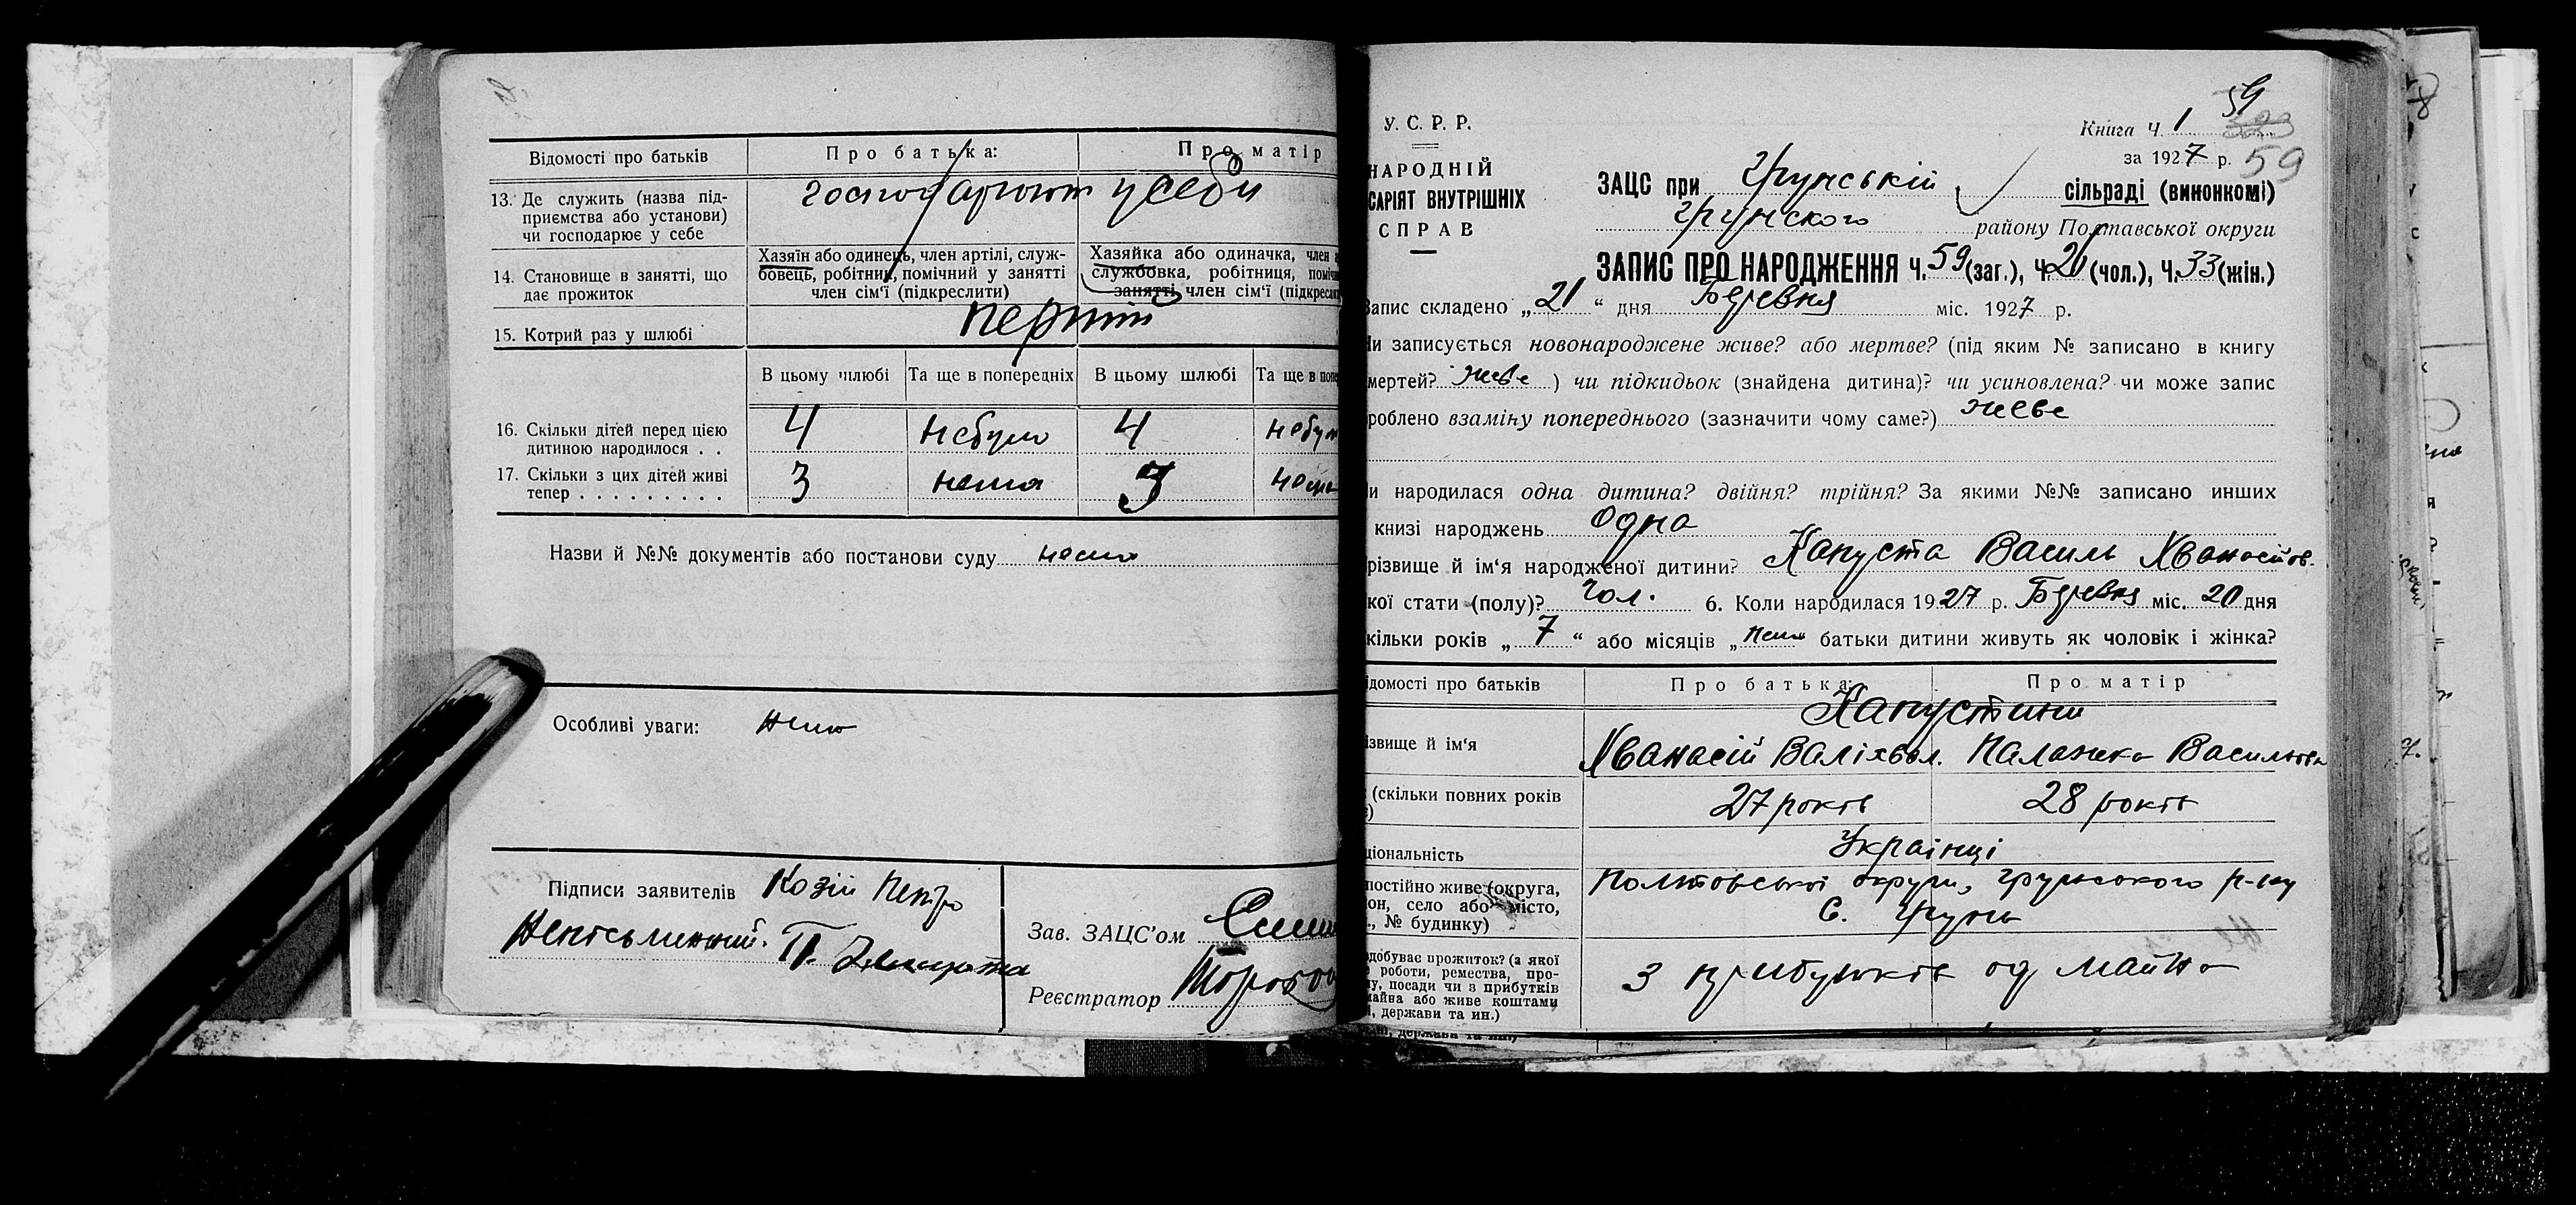 Відомості про батьків
Про батька:
Про матір
13. Де служить (назва під-
приємства або установи)
чи господарює у себе
господарюют у себи
14. Становище в занятті, що
дає прожиток
Хазяїн або одинець, член артілі, служ-
бовець, робітник, помічний у занятті
член сім'ї (підкреслити)
Хазяйка або одиначка, член а
службовка, робітниця, поміч
занятті член сім'ї (підкресл
15. Котрий раз у шлюбі
перший
В цьому шлюбі
Та ще в попередніх
В цьому шлюбі
Та ще в попе
16. Скільки дітей перед цією
дитиною народилося . .
4
небуло
4
небул
17. Скільки з цих дітей живі
тепер . . . . . . . . .
3
нема
3
нема
Назви й №№ документів або постанови суду нема
Особливі уваги: нема
Підписи заявителів Козій Петро
Неписьменний. П.
Зав. ЗАЦС'ом
Реєстратор
У. С. Р. Р.
НАРОДНІЙ
САРІЯТ ВНУТРІШНІХ
СПРАВ
59
Книга Ч. 1
за 1927 р. 59
ЗАЦС при Грунській сільраді (виконкомі)
Грунского району Полтавської округи
ЗАПИС ПРО НАРОДЖЕННЯ Ч. 59 (заг.), Ч. 26 (чол.), Ч. 33 (жін.)
Запис складено „ 21 “ дня Березня міс. 1927 р.
и записується новонароджене живе? або мертве? (під яким № записано в книгу
мертей? живе ) чи підкидьок (знайдена дитина)? чи усиновлена? чи може запис
роблено взаміну попереднього (зазначити чому саме?) живе
и народилася одна дитина? двійня? трійня? За якими №№ записано инших
книзі народжень Одна
різвище й ім'я народженої дитини? Капуста Василь Хванасійов.
кої стати (полу)? Чол. 6. Коли народилася 1927 р. Березня міс. 20 дня
кільки років „ 7 “ або місяців „ нема батьки дитини живуть як чоловік і жінка?
ідомості про батьків
Про батька:
Про матір
Капустини
ізвище й ім'я
Хванасій
Палажка Васильовн
(скільки повних років
27 років
28 років
ціональність
Українці
постійно живе (округа,
он, село або місто,
, № будинку)
Полтовської округи, грунського р-ну
С. Грунь
добуває прожиток? (з якої
роботи, ремества, про-
у, посади чи з прибутків
майна або живе коштами
, держави та ин.)
З прибутків од майна